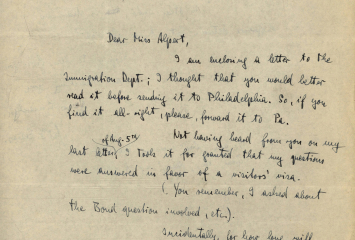 Dear Miss Alpert,
I am enclosing a letter to the
Immigration Dept.; I thought that you would better
read it before sending it to Philadelphia. So, if you
find it all-right, please, forward it to Pa.
Not having heard from you on my
of Aug. 5th
last letter, I took it for granted that my questions
were answered in favor of a visitors' visa.
(You remember, I asked about
the Bond question involved, etc.).
Incidentally, for how long will